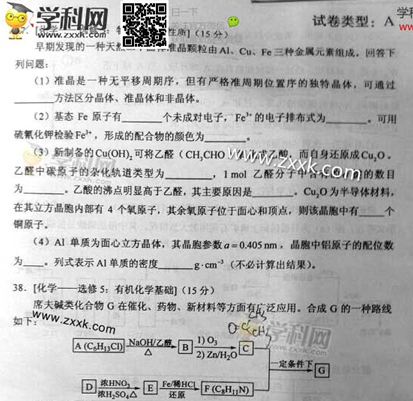 学科网
www.zxxk.com
试卷类型：A
性质](15 分)
早期发现的一种天然 准晶颗粒由 Al、Cu、Fe 三种金属元素组成。回答下
列问题：
（1）准晶是一种无平移周期序，但有严格准周期位置序的独特晶体，可通过
______方法区分晶体、准晶体和非晶体。
（2）基态 Fe 原子有____个未成对电子，Fe³⁺的电子排布式为______。可用
硫氰化钾检验 Fe³⁺，形成的配合物的颜色为______。
（3）新制备的 Cu(OH)₂ 可将乙醛（CH₃CHO 乙酸，而自身还原成 Cu₂O。
乙醛中碳原子的杂化轨道类型为______，1 mol 乙醛分子中 的数目
为______。乙酸的沸点明显高于乙醛，其主要原因是______。Cu₂O 为半导体材料，
在其立方晶胞内部有 4 个氧原子，其余氧原子位于面心和顶点，则该晶胞中有____个
铜原子。
（4）Al 单质为面心立方晶体，其晶胞参数 a=0.405 nm，晶胞中铝原子的配位数
为____。列式表示 Al 单质的密度______g·cm⁻³（不必计算出结果）。
38．[化学——选修 5：有机化学基础]（15 分）
席夫碱类化合物 G 在催化、药物、新材料等方面有广泛应用。合成 G 的一种路线
如下：
A (C₆H₁₃Cl) NaOH/乙醇 △ B 1) O₃ 2) Zn/H₂O C
一定条件下 G
D 浓HNO₃ 浓H₂SO₄ △ E Fe/稀HCl 还原 F (C₈H₁₁N)
学科网
www.zxxk.com